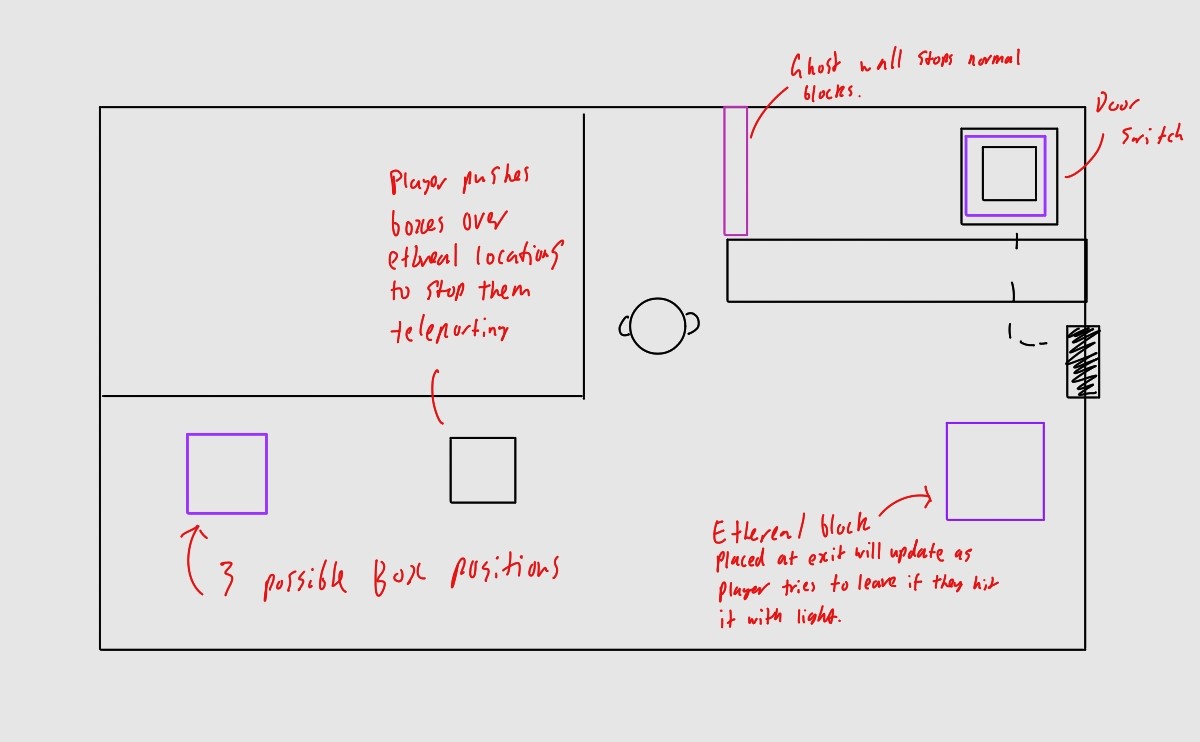 Ghost wall stops normal
blocks.
Door
switch
Player pushes
boxes over
ethreal locations
to stop them
teleporting
3 possible Box positions
Ethereal block
placed at exit will update as
player tries to leave if they hit
it with light.